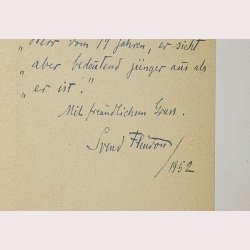 „Herr vom 19 Jahren, er sieht
„aber bedeutend jünger aus als
„er ist."
Mit freundlichem Gruss.
Svend Fleuron
/1952